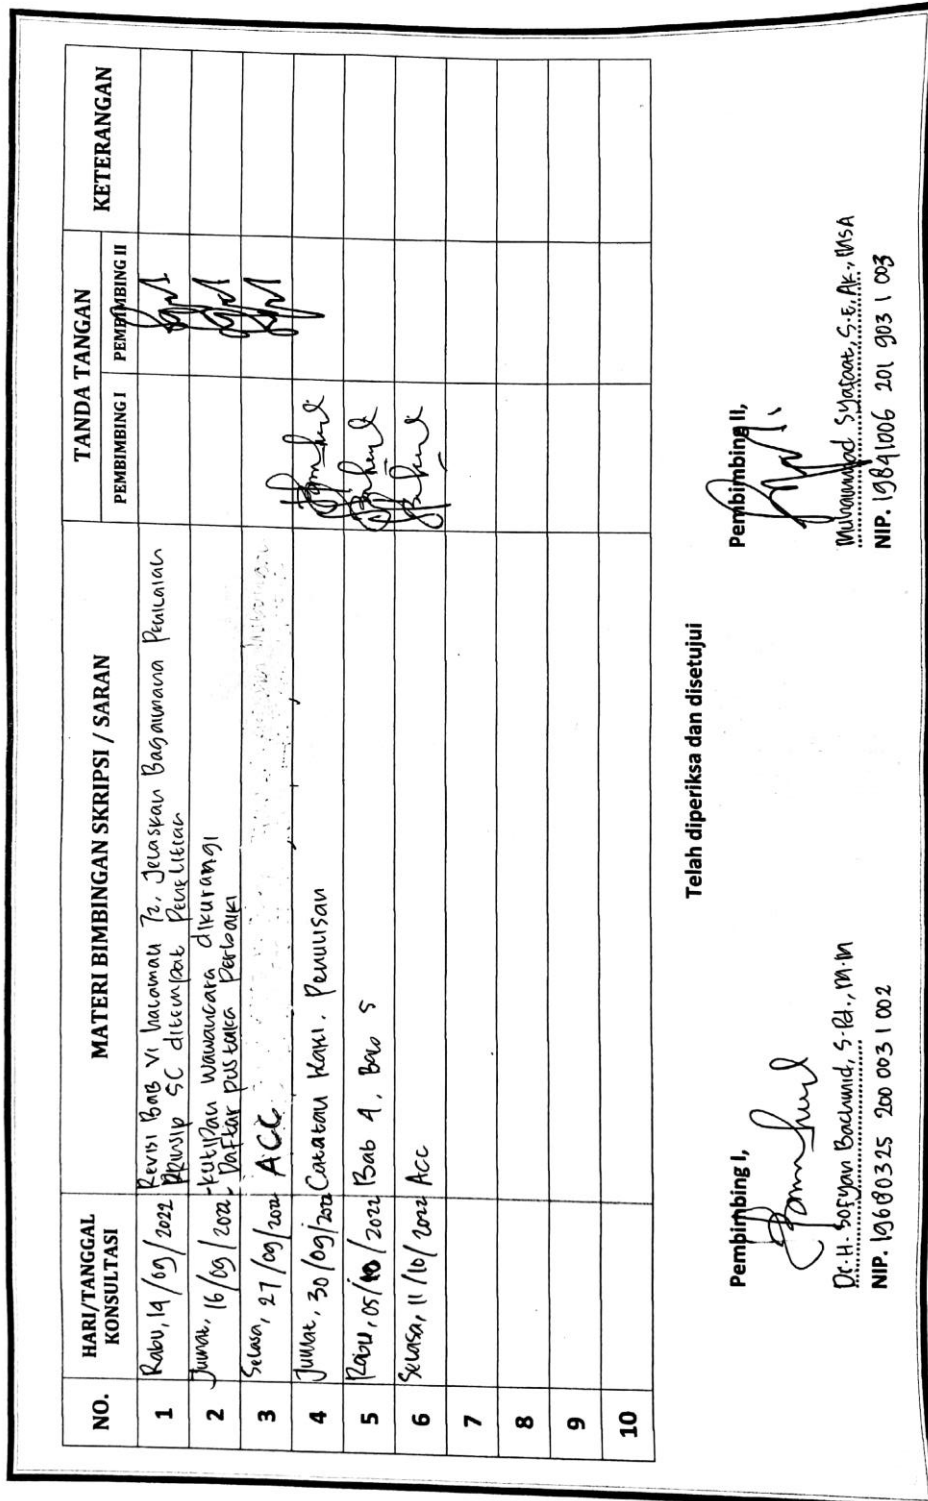 NO.
HARI/TANGGAL
KONSULTASI
MATERI BIMBINGAN SKRIPSI / SARAN
TANDA TANGAN
PEMBIMBING I
PEMBIMBING II
KETERANGAN
1
Rabu, 14/09/2022
Revisi BAB VI halaman 72, Jelaskan Bagaimana Penilaian
Prinsip 5C ditempat Penelitian
2
Jumat, 16/09/2022
- Kutipan wawancara dikurangi
- Daftar pustaka Perbaiki
3
Selasa, 27/09/2022
ACC
4
Jumat, 30/09/2022
Catatan Kaki. Penulisan
5
Rabu, 05/10/2022
Bab 4, Bab 5
6
Selasa, 11/10/2022
Acc
7
8
9
10
Telah diperiksa dan disetujui
Pembimbing I,
Dr. H. Sofyan Bachmid, S.Pd., M.M
NIP. 19680325 200 003 1 002
Pembimbing II,
Muhammad Syafaat, S.E, Ak., MSA
NIP. 19841006 201 903 1 003